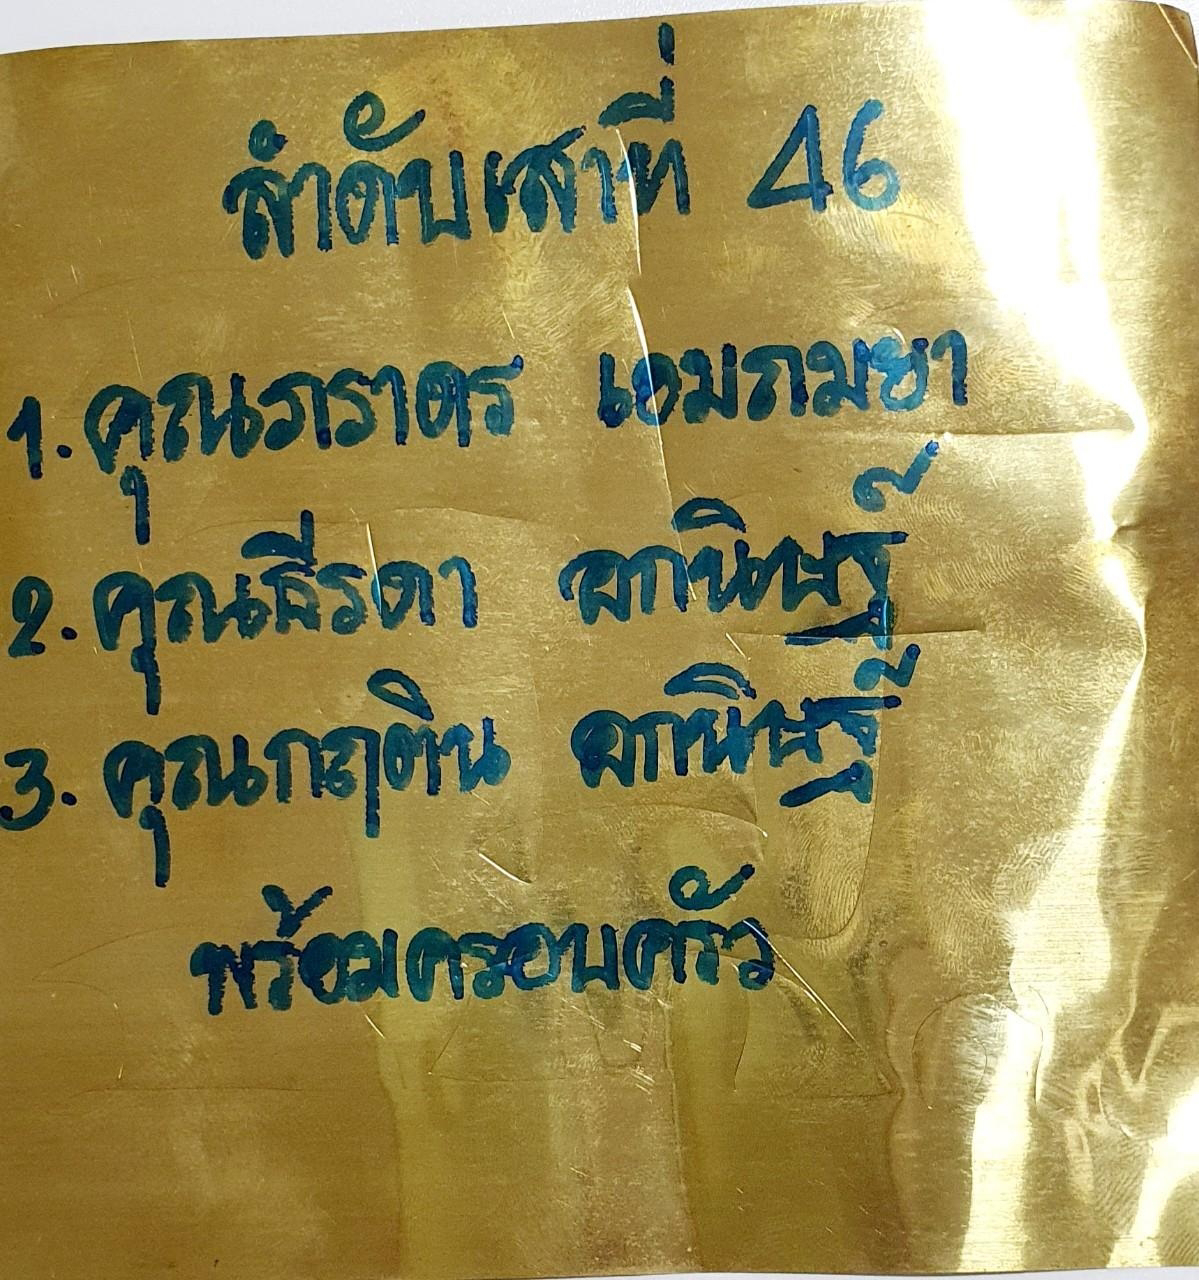 ลำดับเสาที่ 46
1. คุณภราดร เอมกมยา
2. คุณธีรดา อกนิษฐ์
3. คุณกฤติน อกนิษฐ์
พร้อมครอบครัว